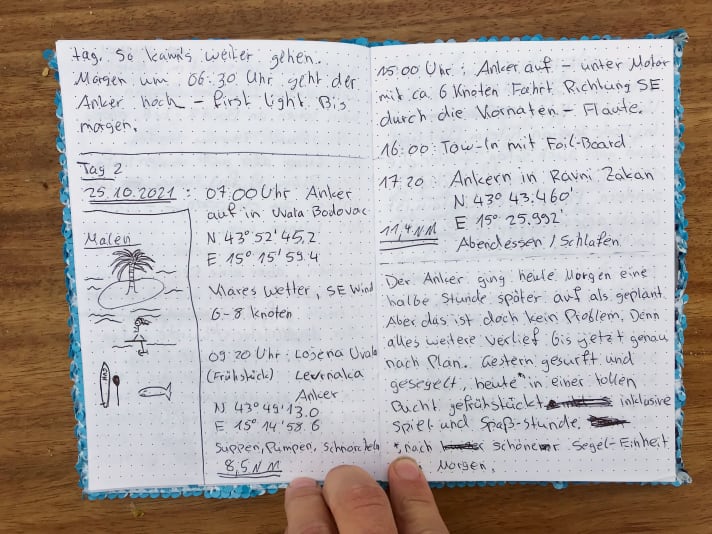 tag. So kann's weiter gehen.
Morgen um 06:30 Uhr geht der
Anker hoch – first light. Bis
morgen.
Tag 2
25.10.2021 : 07:00 Uhr: Anker
auf in Uvala Bodovac
N 43° 52' 45.2
E 15° 15' 59.4
Malen
Klares Wetter, SE Wind
6-8 knoten
09:20 Uhr: Lojena Uvala
(Frühstück) Levrnaka
Anker
N 43° 49' 13.0
E 15° 14' 58.6
Suppen, Pumpen, Schnorcheln
8,5 NM
15:00 Uhr: Anker auf – unter Motor
mit ca. 6 Knoten Fahrt Richtung SE
durch die Kornaten – Flaute.
16:00: Tow-In mit Foil-Board
17:20: Ankern in Ravni Zakan
N 43° 43.460'
E 15° 25.992'
11,4 NM
Abendessen / Schlafen
Der Anker ging heute Morgen eine
halbe Stunde später auf als geplant.
Aber das ist doch kein Problem. Denn
alles weitere verlief bis jetzt genau
nach Plan. Gestern gesurft und
gesegelt, heute * in einer tollen
Bucht gefrühstückt inklusive
Spiel und Spaß-Stunde.
*, nach schöner Segel-Einheit
Morgen,